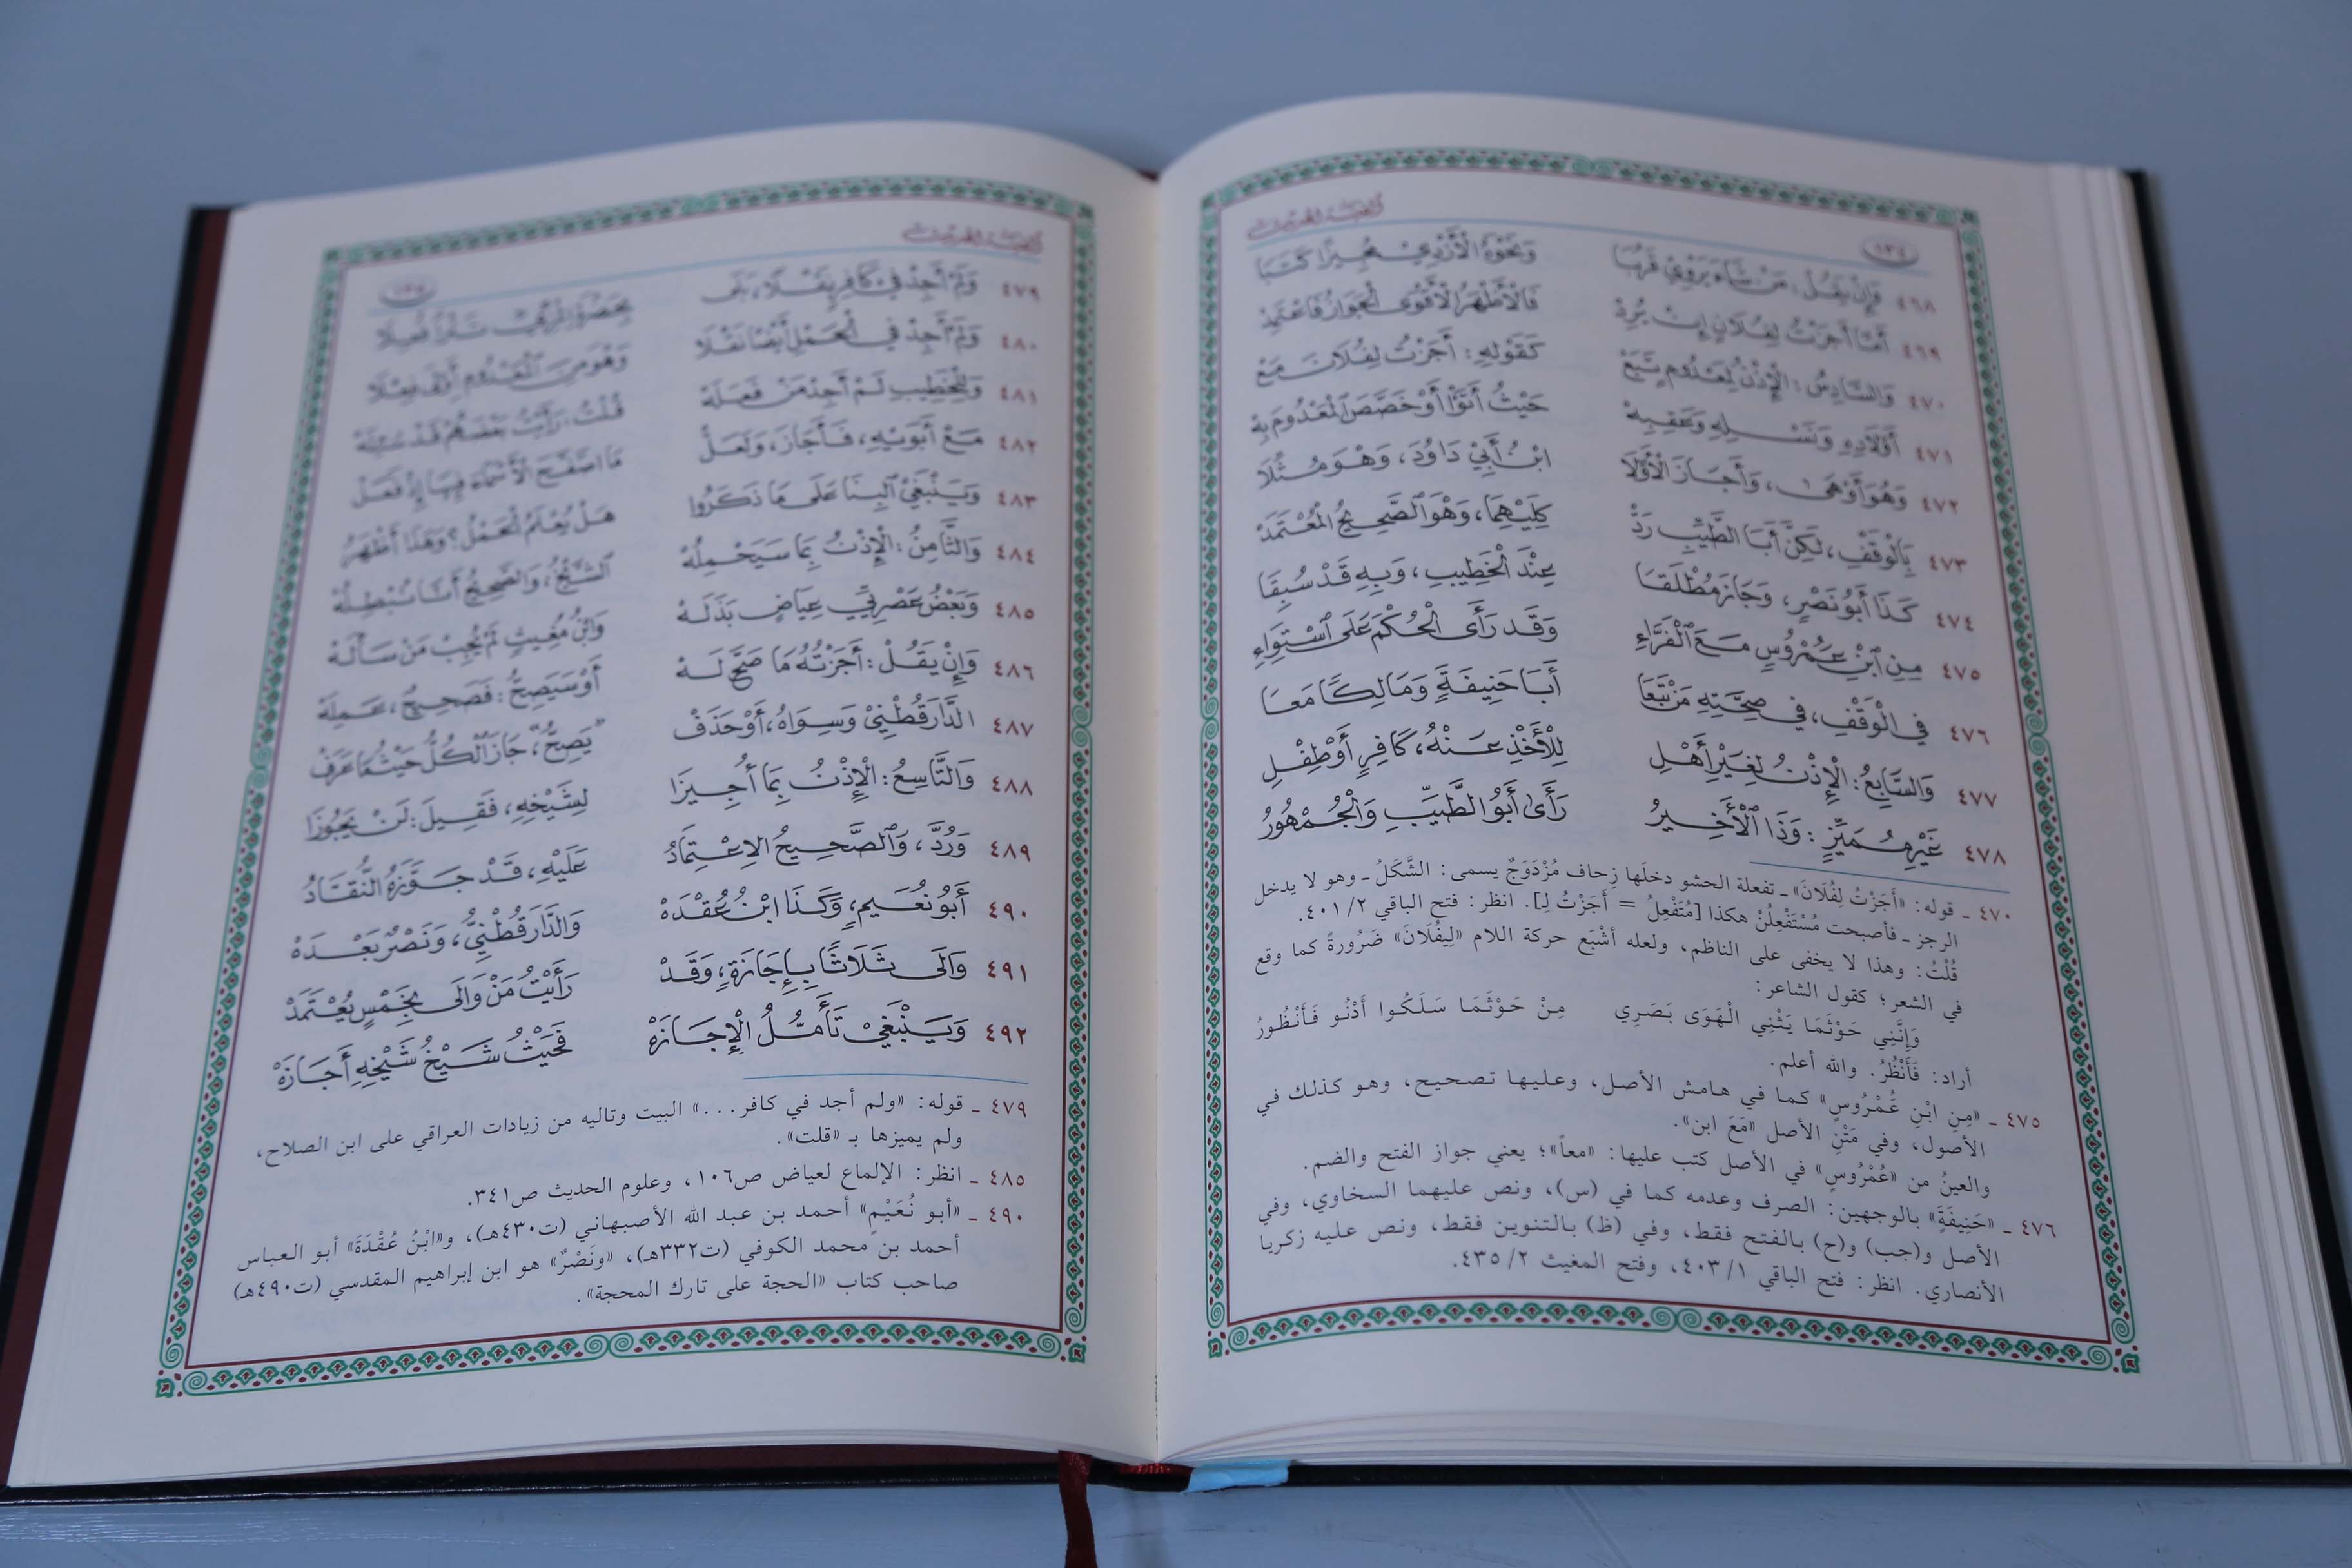 ١٣٤
ألفية الحديث
٤٦٨ وَإِنْ يَقُلْ: مَنْ شَاءَ يَرْوِيْ قَرُبَا وَنَحْوَهُ الْأَزْدِيْ مُجِيزًا كَتَبَا
٤٦٩ أَمَّا أَجَزْتُ لِفُلَانٍ إِنْ يُرِدْ فَالْأَظْهَرُ الْأَقْوَى الْجَوَازُ فَاعْتَمِدْ
٤٧٠ وَالسَّادِسُ: الْإِذْنُ لِمَعْدُومٍ تَبَعْ كَقَوْلِهِ: أَجَزْتُ لِفُلَانَ مَعْ
٤٧١ أَوْلَادِهِ وَنَسْلِهِ وَعَقِبِهْ حَيْثُ أَتَوْا أَوْ خَصَّصَ الْمَعْدُومَ بِهْ
٤٧٢ وَهُوَ أَوْهَى، وَأَجَازَ الْأَوَّلَا ابْنُ أَبِيْ دَاوُدَ، وَهْوَ مُثِّلَا
٤٧٣ بِالْوَقْفِ، لَكِنَّ أَبَا الطَّيِّبِ رَدْ كِلَيْهِمَا، وَهْوَ الصَّحِيحُ الْمُعْتَمَدْ
٤٧٤ كَذَا أَبُو نَصْرٍ، وَجَازَ مُطْلَقَا عِنْدَ الْخَطِيبِ، وَبِهِ قَدْ سُبِقَا
٤٧٥ مِنِ ابْنِ عَُمْرُوسٍ مَعَ الْفَرَّاءِ وَقَدْ رَأَى الْحُكْمَ عَلَى اسْتِوَاءِ
٤٧٦ فِي الْوَقْفِ، فِي صِحَّتِهِ مَنْ تَبِعَا أَبَا حَنِيفَةٍَ وَمَالِكًا مَعَا
٤٧٧ وَالسَّابِعُ: الْإِذْنُ لِغَيْرِ أَهْلِ لِلْأَخْذِ عَنْهُ، كَافِرٍ أَوْ طِفْلِ
٤٧٨ غَيْرِ مُمَيِّزٍ: وَذَا الْأَخِيرُ رَأَى أَبُو الطَّيِّبِ وَالْجُمْهُورُ
٤٧٠ ـ قوله: «أَجَزْتُ لِفُلَانَ» ـ تفعلة الحشو دخلَها زِحاف مُزْدَوَجٌ يسمى: الشَّكَلُ ـ وهو لا يدخل
الرجز ـ فأصبحت مُسْتَفْعِلُنْ هكذا [مُتَفْعِلُ = أَجَزْتُ لِـ]. انظر: فتح الباقي ٤٠١/٢.
قُلْتُ: وهذا لا يخفى على الناظم، ولعله أشْبَع حركة اللام «لِيفُلَانَ» ضَرُورةً كما وقع
في الشعر؛ كقول الشاعر:
وَإِنَّنِي حَوْثَمَا يَثْنِي الْهَوَى بَصَرِي مِنْ حَوْثَمَا سَلَكُوا أَدْنُو فَأَنْظُورُ
أراد: فَأَنْظُرُ. والله أعلم.
٤٧٥ ـ «مِنِ ابْنِ عَُمْرُوسٍ» كما في هامش الأصل، وعليها تصحيح، وهو كذلك في
الأصول، وفي مَتْنِ الأصل «مَعَ ابن».
والعينُ من «عَُمْرُوسٍ» في الأصل كتب عليها: «معاً»؛ يعني جواز الفتح والضم.
٤٧٦ ـ «حَنِيفَةٍَ» بالوجهين: الصرف وعدمه كما في (س)، ونص عليهما السخاوي، وفي
الأصل و(جب) و(ح) بالفتح فقط، وفي (ظ) بالتنوين فقط، ونص عليه زكريا
الأنصاري. انظر: فتح الباقي ٤٠٣/١، وفتح المغيث ٤٣٥/٢.
ألفية الحديث
١٣٥
٤٧٩ وَلَمْ أَجِدْ فِي كَافِرٍ نَقْلًا، بَلَى بِحَضْرَةِ الْمِزِّيِّ تَتْرًا فُعِلَا
٤٨٠ وَلَمْ أَجِدْ فِي الْحَمْلِ أَيْضًا نَقْلَا وَهْوَ مِنَ الْمَعْدُومِ أَوْلَى فِعْلَا
٤٨١ وَلِلْخَطِيبِ لَمْ أَجِدْ مَنْ فَعَلَهْ قُلْتُ: رَأَيْتُ بَعْضَهُمْ قَدْ سُئِلَهْ
٤٨٢ مَعْ أَبَوَيْهِ، فَأَجَازَ، وَلَعَلْ مَا اصَّفَّحَ الْأَسْمَاءَ فِيهَا إِذْ فَعَلْ
٤٨٣ وَيَنْبَغِيْ الْبِنَا عَلَى مَا ذَكَرُوا هَلْ يُعْلَمُ الْحَمْلُ؟ وَهَذَا أَظْهَرُ
٤٨٤ وَالثَّامِنُ: الْإِذْنُ بِمَا سَيَحْمِلُهْ الشَّيْخُ، وَالصَّحِيحُ أَنَّا نُبْطِلُهْ
٤٨٥ وَبَعْضُ عَصْرِيِّيْ عِيَاضٍ بَذَلَهْ وَابْنُ مُغِيثٍ لَمْ يُجِبْ مَنْ سَأَلَهْ
٤٨٦ وَإِنْ يَقُلْ: أَجَزْتُهُ مَا صَحَّ لَهْ أَوْ سَيَصِحُّ: فَصَحِيحٌ، عَمِلَهْ
٤٨٧ الدَّارَقُطْنِيْ وَسِوَاهُ، أَوْ حَذَفْ "يَصِحُّ"، جَازَ الْكُلُّ حَيْثُمَا عَرَفْ
٤٨٨ وَالتَّاسِعُ: الْإِذْنُ بِمَا أُجِيزَا لِشَيْخِهِ، فَقِيلَ: لَنْ يَجُوزَا
٤٨٩ وَرُدَّ، وَالصَّحِيحُ الِاعْتِمَادُ عَلَيْهِ، قَدْ جَوَّزَهُ النُّقَّادُ
٤٩٠ أَبُو نُعَيمٍ، وَكَذَا ابْنُ عُقْدَهْ وَالدَّارَقُطْنِيُّ، وَنَصْرٌ بَعْدَهْ
٤٩١ وَالَى ثَلَاثًا بِإِجَازَةٍ، وَقَدْ رَأَيْتُ مَنْ وَالَى بِخَمْسٍ يُعْتَمَدْ
٤٩٢ وَيَنْبَغِيْ تَأَمُّلُ الْإِجَازَهْ فَحَيْثُ شَيْخُ شَيْخِهِ أَجَازَهْ
٤٧٩ ـ قوله: «ولم أجد في كافر...» البيت وتاليه من زيادات العراقي على ابن الصلاح،
ولم يميزها بـ «قلت».
٤٨٥ ـ انظر: الإلماع لعياض ص١٠٦، وعلوم الحديث ص٣٤١.
٤٩٠ ـ «أبو نُعَيْمٍ» أحمد بن عبد الله الأصبهاني (ت٤٣٠هـ)، و«ابْنُ عُقْدَةَ» أبو العباس
أحمد بن محمد الكوفي (ت٣٣٢هـ)، «ونَصْرٌ» هو ابن إبراهيم المقدسي (ت٤٩٠هـ)
صاحب كتاب «الحجة على تارك المحجة».